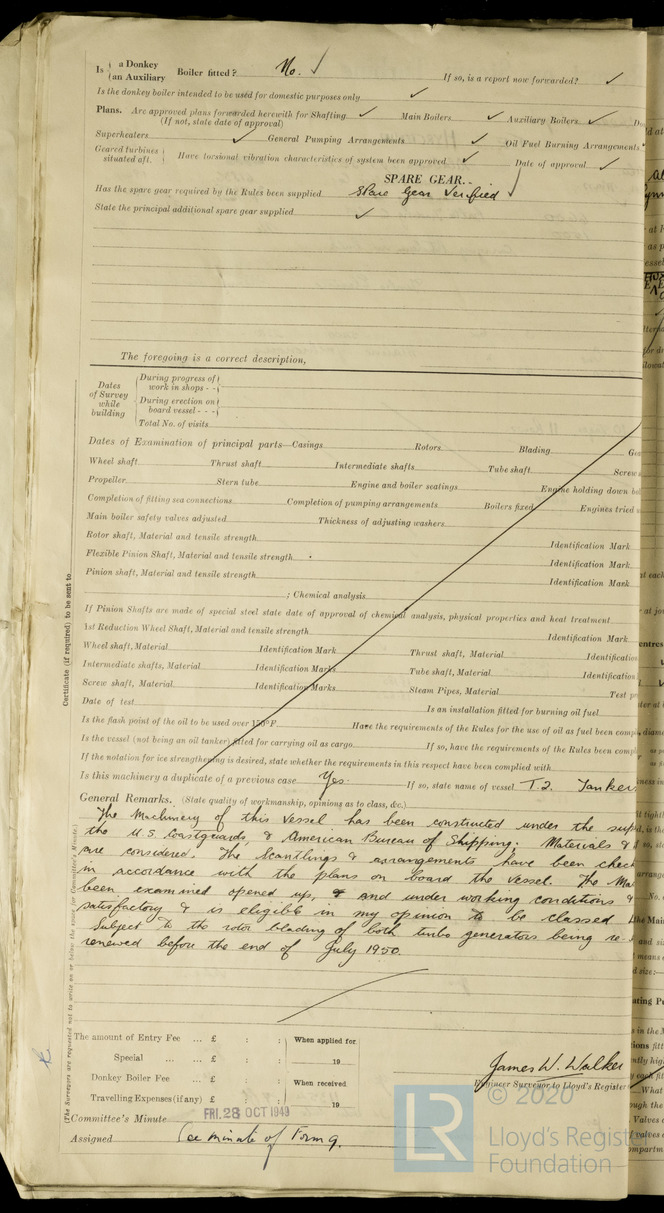 Is { a Donkey / an Auxiliary } Boiler fitted? No. ✓ If so, is a report now forwarded? ✓
Is the donkey boiler intended to be used for domestic purposes only ✓
Plans. Are approved plans forwarded herewith for Shafting ✓ Main Boilers ✓ Auxiliary Boilers ✓
(If not, state date of approval)
Superheaters ✓ General Pumping Arrangements ✓ Oil Fuel Burning Arrangements
Geared turbines situated aft. } Have torsional vibration characteristics of system been approved ✓ Date of approval ✓
SPARE GEAR.
Has the spare gear required by the Rules been supplied Spare Gear Verified ✓
State the principal additional spare gear supplied ✓
The foregoing is a correct description,
Dates of Survey while building
During progress of work in shops - -
During erection on board vessel - - -
Total No. of visits
Dates of Examination of principal parts—Casings Rotors Blading
Wheel shaft Thrust shaft Intermediate shafts Tube shaft Screw
Propeller Stern tube Engine and boiler seatings Engine holding down
Completion of fitting sea connections Completion of pumping arrangements Boilers fixed Engines tried
Main boiler safety valves adjusted Thickness of adjusting washers
Rotor shaft, Material and tensile strength Identification Mark
Flexible Pinion Shaft, Material and tensile strength Identification Mark
Pinion shaft, Material and tensile strength Identification Mark
; Chemical analysis
If Pinion Shafts are made of special steel state date of approval of chemical analysis, physical properties and heat treatment
1st Reduction Wheel Shaft, Material and tensile strength Identification Mark
Wheel shaft, Material Identification Mark Thrust shaft, Material Identification
Intermediate shafts, Material Identification Marks Tube shaft, Material Identification
Screw shaft, Material Identification Marks Steam Pipes, Material Test
Date of test Is an installation fitted for burning oil fuel
Is the flash point of the oil to be used over 150°F. Have the requirements of the Rules for the use of oil as fuel been
Is the vessel (not being an oil tanker) fitted for carrying oil as cargo If so, have the requirements of the Rules been
If the notation for ice strengthening is desired, state whether the requirements in this respect have been complied with
Is this machinery a duplicate of a previous case Yes. If so, state name of vessel T.2. Tankers
General Remarks. (State quality of workmanship, opinions as to class, &c.)
The Machinery of this Vessel has been constructed under the
the U.S. Coastguards, & American Bureau of Shipping. Materials &
are considered. The Scantlings & arrangements have been
in accordance with the plans on board the vessel. The
been examined opened up, & and under working conditions &
satisfactory & is eligible in my opinion to be classed
Subject to the rotor blading of both turbo generators being re-
renewed before the end of July 1950.
The amount of Entry Fee ... £ : : When applied for
Special ... ... £ : : 19
Donkey Boiler Fee ... £ : : When received
Travelling Expenses (if any) £ : : 19
James W. Walker
Engineer Surveyor to Lloyd's Register
Committee's Minute FRI. 28 OCT 1949
Assigned See minute of Form 9.
Certificate (if required) to be sent to
(The Surveyors are requested not to write on or below the space for Committee's Minute.)
© 2020
LR
Lloyd's Register
Foundation